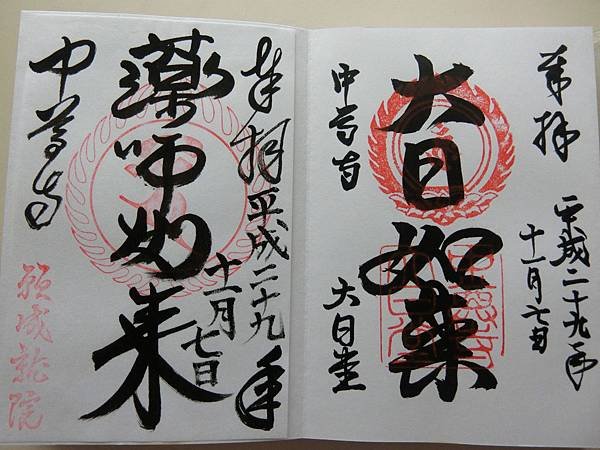 奉拝
平成二十九年
十一月七日
大日如来
中尊寺
大日堂
奉拝 平成二十九年
十一月七日
薬師如来
中尊寺
願成就院